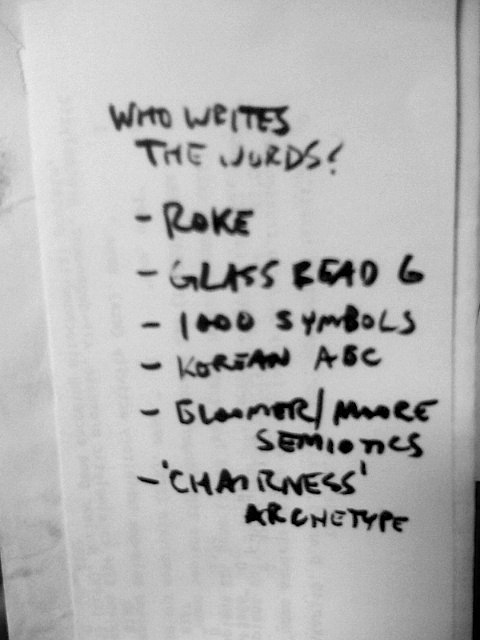 WHO WRITES
THE WORDS?
- ROKE
- GLASS BEAD G
- 1000 SYMBOLS
- KOREAN ABC
- GLOOMER/MOORE
SEMIOTICS
- 'CHAIRNESS'
ARCHETYPE